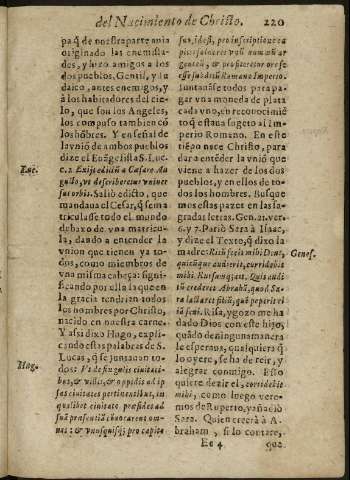 del Nacimiento de Christo. 220
pa q̃ de nuestra parte auia
originado las enemista-
des, y hizo amigos a los
dos pueblos, Gentil, y Iu
daico, antes enemigos, y
à los habitadores del cie-
lo, que son los Angeles,
los compuso tambien cõ
los hõbres. Y en señal de
la vniõ de ambos pueblos
dize el Euãgelista S. Luc.
Luc.
c.2. Exijt edictũ a Cæsare Au
gusto, vt describeretur vniuer
sus orbis. Salio edicto, que
mandaua el Cesar, q̃ se ma
triculasse todo el mundo
debaxo de vna matricu-
la, dando a entender la
vnion que tienen ya to-
dos, como miembros de
vna misma cabeça: signi-
ficando por ella la que en
la gracia tendrian todos
los hombres por Christo,
nacido en nuestra carne.
Y assi dixo Hugo, expli-
cando estas palabras de S.
Hug.
Lucas, q̃ se juntauan to-
dos: Vt de singulis ciuitati-
bus, & villis, & oppidis ad ip
sas ciuitates pertinentibus, in
qualibet ciuitate præsidet ad
suã præsentiã cõuocarent om-
nes: & vnusquisq; pro capite
suo, idest, pro inscriptione ca
pitis solueret vnũ nummũ ar
genteũ, & profiteretur ore se
esse subditũ Romano Imperio.
Iuntauãse todos para pa-
gar vna moneda de plata
cada vno, en reconocimiẽ
to q̃ estaua sugeto al Im-
perio Romano. En este
tiẽpo nace Christo, para
dar a entẽder la vniõ que
viene a hazer de los dos
pueblos, y en ellos de to-
dos los hombres. Busque
mos estas pazes en las sa-
gradas letras. Gen. 21. ver.
6. y 7. Pariò Sara à Isaac,
y dize el Texto, q̃ dixo la
madre: Risũ fecit mihi Deus,
Genes.
quicũque audierit, corridebit
mihi. Rursumq; ait. Quis audi
tũ crederet Abrahã, quod Sa-
ra lactaret filiũ, quẽ peperit ei
iã seni. Risa, y gozo me ha
dado Dios con este hijo,
quãdo de ninguna manera
le esperaua, qualquiera q̃
lo oyere, se ha de reir, y
alegrar conmigo. Esso
quiere dezir el, corridebit
mihi, como luego vere-
mos de Ruperto, y añadiò
Sara. Quien creerà à A-
braham, si lo contare,
Ee 4 que